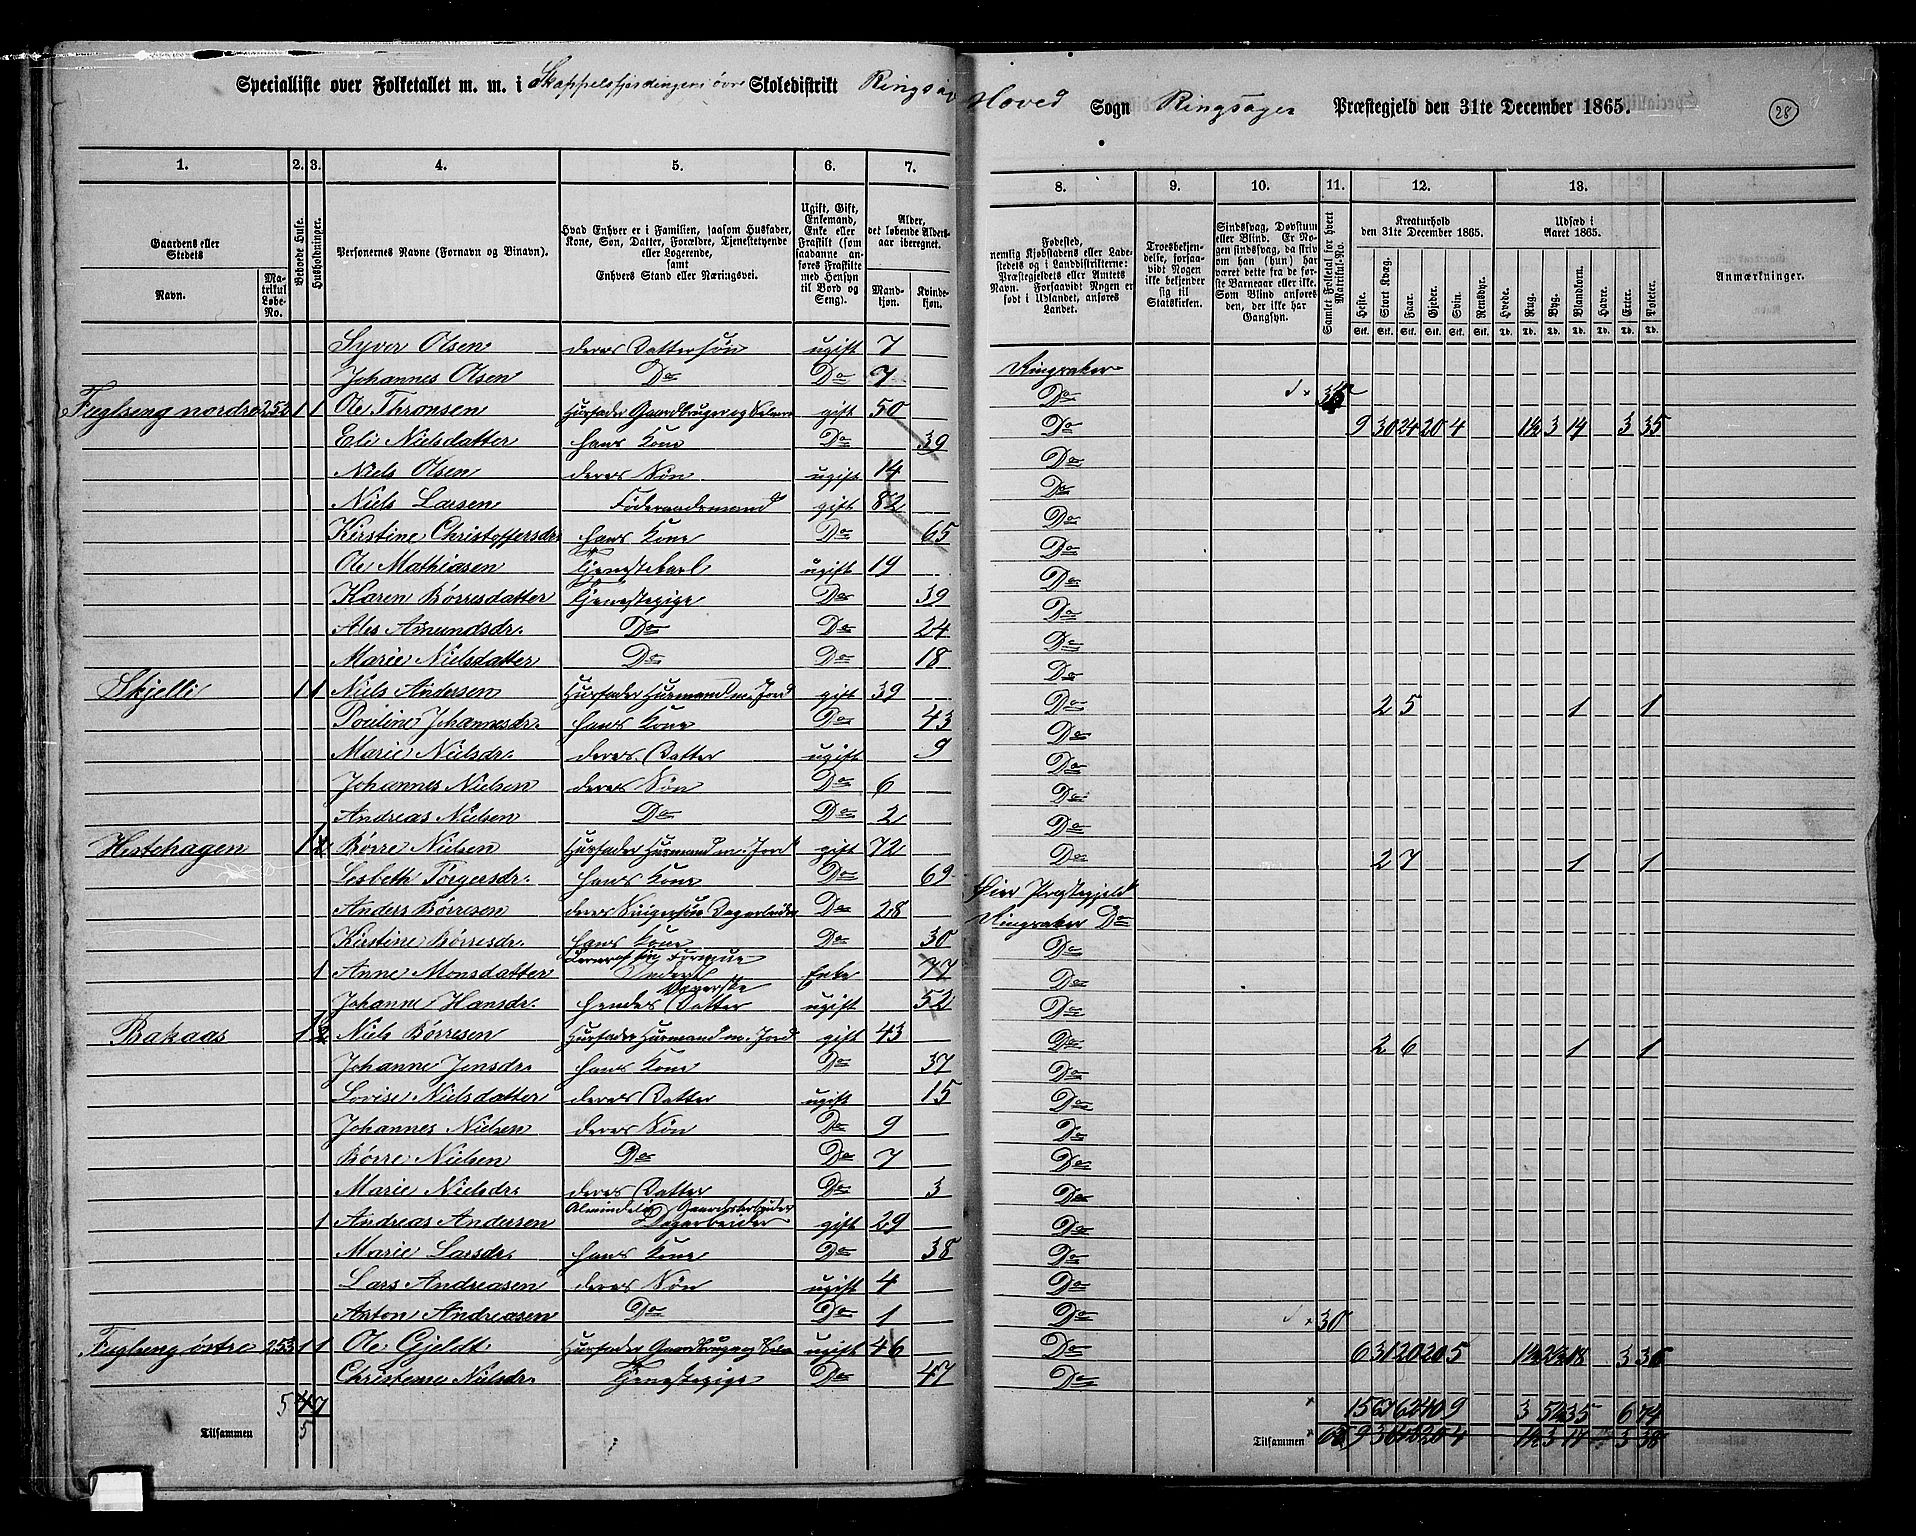 Specialliste over Folketallet m. m. i Skappelsfjerdingens övre Skoledistrikt Ringsag Hoved Sogn Ringsager Præstegjeld den 31te December 1865.
28
1. 2. 3. 4. 5. 6. 7. 8. 9. 10. 11. 12. 13.
Gaardens eller Stedets Navn.
Matrikul Løbe-No.
Beboede Huse.
Husholdninger.
Personernes Navne (Fornavn og Binavn).
Hvad Enhver er i Familien, saasom Husfader, Kone, Søn, Datter, Forældre, Tjenestetyende eller Logerende, samt Enhvers Stand eller Næringsvei.
Ugift, Gift, Enkemand, Enke eller Fraskilt (som saadanne anføres Fraskilte med Hensyn til Bord og Seng).
Alder, det løbende Alders-aar iberegnet.
Mandkjøn. Kvindekjøn.
Fødested, nemlig Kjøbstadens eller Ladestedets og i Landdistrikterne: Præstegjeldets eller Amtets Navn. Forsaavidt Nogen er født i Udlandet, anføres Landet.
Troesbekjendelse, forsaavidt Nogen ikke bekjender sig til Statskirken.
Sindssvag, Døvstum eller Blind. Er Nogen sindssvag, da skrives om han (hun) har været dette fra de første Barneaar eller ikke. Som Blind anføres den, der ikke har Gangsyn.
Samlet Folketal for hvert Matrikul-No.
Kreaturhold den 31te December 1865.
Heste. Stort Kvæg. Faar. Gjeder. Svin. Rensdyr.
Udsæd i Aaret 1865.
Hvede. Rug. Byg. Blandkorn. Havre. Erter. Poteter.
Anmærkninger.
Syver Olsen deres Dattersön ugift 7 Ringsaker
Johannes Olsen Do Do 7 Do
Fuglseng nordre 252 1 1 Ole Thronsen Husfader Gaardbruger og Selveier gift 50 Do 9 30 24 20 4 1½ 3 14 3 35
Eli Nielsdatter hans Kone Do 39 Do
Niels Olsen deres Sön ugift 14 Do
Niels Larsen Föderaadsmand gift 82 Do
Kirstine Christoffersdr. hans Kone Do 65 Do
Ole Mathiasen Tjenestekarl ugift 19 Do
Karen Börresdatter Tjenestepige Do 39 Do
Ales Amundsdr. Do Do 24 Do
Marie Nielsdatter Do Do 18 Do
Skjelli 1 1 Niels Andersen Husfader Husmand m. Jord gift 39 Do 2 5 1 1
Pouline Johannesdr. hans Kone Do 43 Do
Marie Nielsdr. deres Datter ugift 9 Do
Johannes Nielsen deres Sön Do 6 Do
Andreas Nielsen Do Do 2 Do
Hestehagen 1 Börre Nielsen Husfader Husmand m. Jord gift 72 Do 2 7 1 1
Lisbeth Torgersdr. hans Kone Do 69 Öier Præstegjeld
Anders Börresen deres Svigersön Dagarbeider Do 28 Ringsaker Do
Kirstine Börresdr. hans Kone Do 30 Do
1 Anne Monsdatter Lever af sin Formue Enke 77 Do
Johanne Hansdr. hendes Datter Væverske ugift 52 Do
Bakaas 1 Niels Börresen Husfader Husmand m. Jord gift 43 Do 2 6 1 1
Johanne Jensdr. hans Kone Do 37 Do
Lovise Nielsdatter deres Datter ugift 15 Do
Johannes Nielsen deres Sön Do 9 Do
Börre Nielsen Do Do 7 Do
Marie Nielsdr. deres Datter Do 3 Do
1 Andreas Andersen Almindelig Gaardsarbeider Dagarbeider gift 29 Do
Marie Larsdr. hans Kone Do 38 Do
Lars Andreasen deres Sön ugift 4 Do
Anton Andreasen Do Do 1 Do 30
Fuglseng östre 253 1 1 Ole Gjeldt Husfader Gaardbruger og Selveier ugift 46 Do 6 31 20 20 5 18 3 36
Christense Nielsdr. Tjenestepige Do 47 Do
5 7
15 67 62 40 9 3 35 6 74
Tilsammen 5
Tilsammen 9 20 4 1½ 3 14 3 38